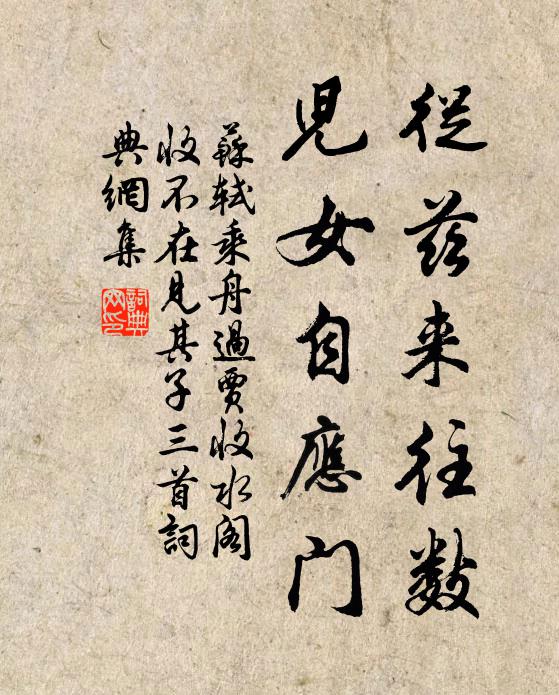 從茲来往數
兒女自應門
蘇軾乘舟過賈收水阁
收不在見其子三首詞
典網集
詞典
网印